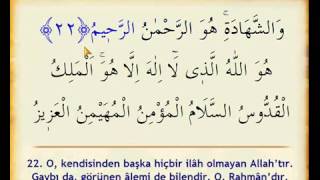 وَالشَّهَادَةِ هُوَ الرَّحْمٰنُ الرَّحٖيمُ ﴿٢٢﴾
هُوَ اللّٰهُ الَّذٖى لَٓا اِلٰهَ اِلَّا هُوَ اَلْمَلِكُ
الْقُدُّوسُ السَّلَامُ الْمُؤْمِنُ الْمُهَيْمِنُ الْعَزٖيزُ
22. O, kendisinden başka hiçbir ilâh olmayan Allah’tır.
Gaybı da, görünen âlemi de bilendir. O, Rahmân’dır,